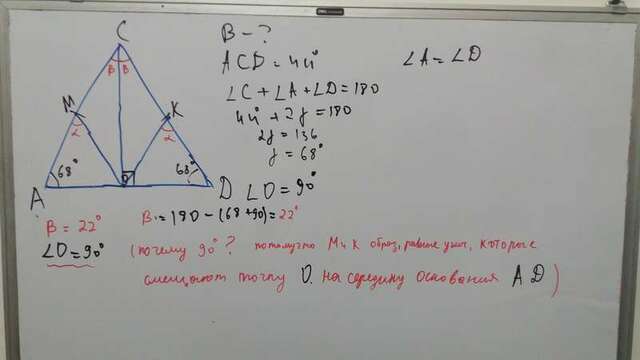 C
B - ?
ACD = 44°
∠A = ∠D
β β
∠C + ∠A + ∠D = 180
M
K
44° + 2y = 180
2y = 136
α
α
y = 68°
68°
68°
A
D
∠O = 90°
B = 22°
B = 180 - (68 + 90) = 22°
∠O = 90°
(почему 90°? потомучто М и К образ. равные углы, которые
смещают точку О. на середину основания AD)